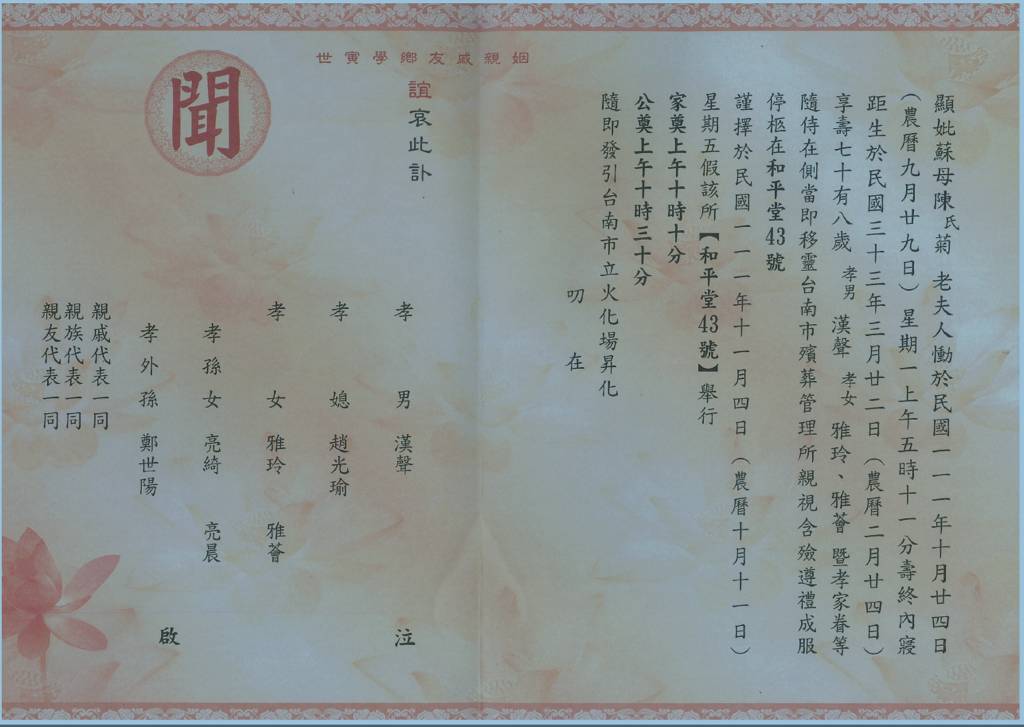 顯妣蘇母陳氏菊 老夫人慟於民國一一一年十月廿四日
(農曆九月廿九日)星期一上午五時十一分壽終內寢
距生於民國三十三年三月廿二日(農曆二月廿四日)
享壽七十有八歲 孝男 漢聲 孝女 雅玲、雅薈 暨孝家眷等
隨侍在側當即移靈台南市殯葬管理所親視含殮遵禮成服
停柩在和平堂43號
謹擇於民國一一一年十一月四日(農曆十月十一日)
星期五假該所【和平堂43號】舉行
家奠上午十時十分
公奠上午十時三十分
隨即發引台南市立火化場昇化
叨 在
姻親戚友鄉學寅世
誼哀此訃
聞
孝男 漢聲 泣
孝媳 趙光瑜
孝女 雅玲 雅薈
孝孫女 亮綺 亮晨
孝外孫 鄭世陽 啟
親戚代表一同
親族代表一同
親友代表一同